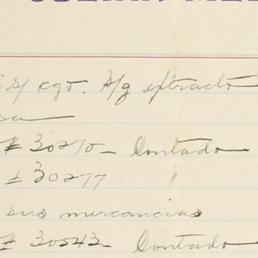 s/ cgo. s/g extracto
sa
# 30270 - Contado
# 30277 "
sus mercancias
# 30543 - Contado